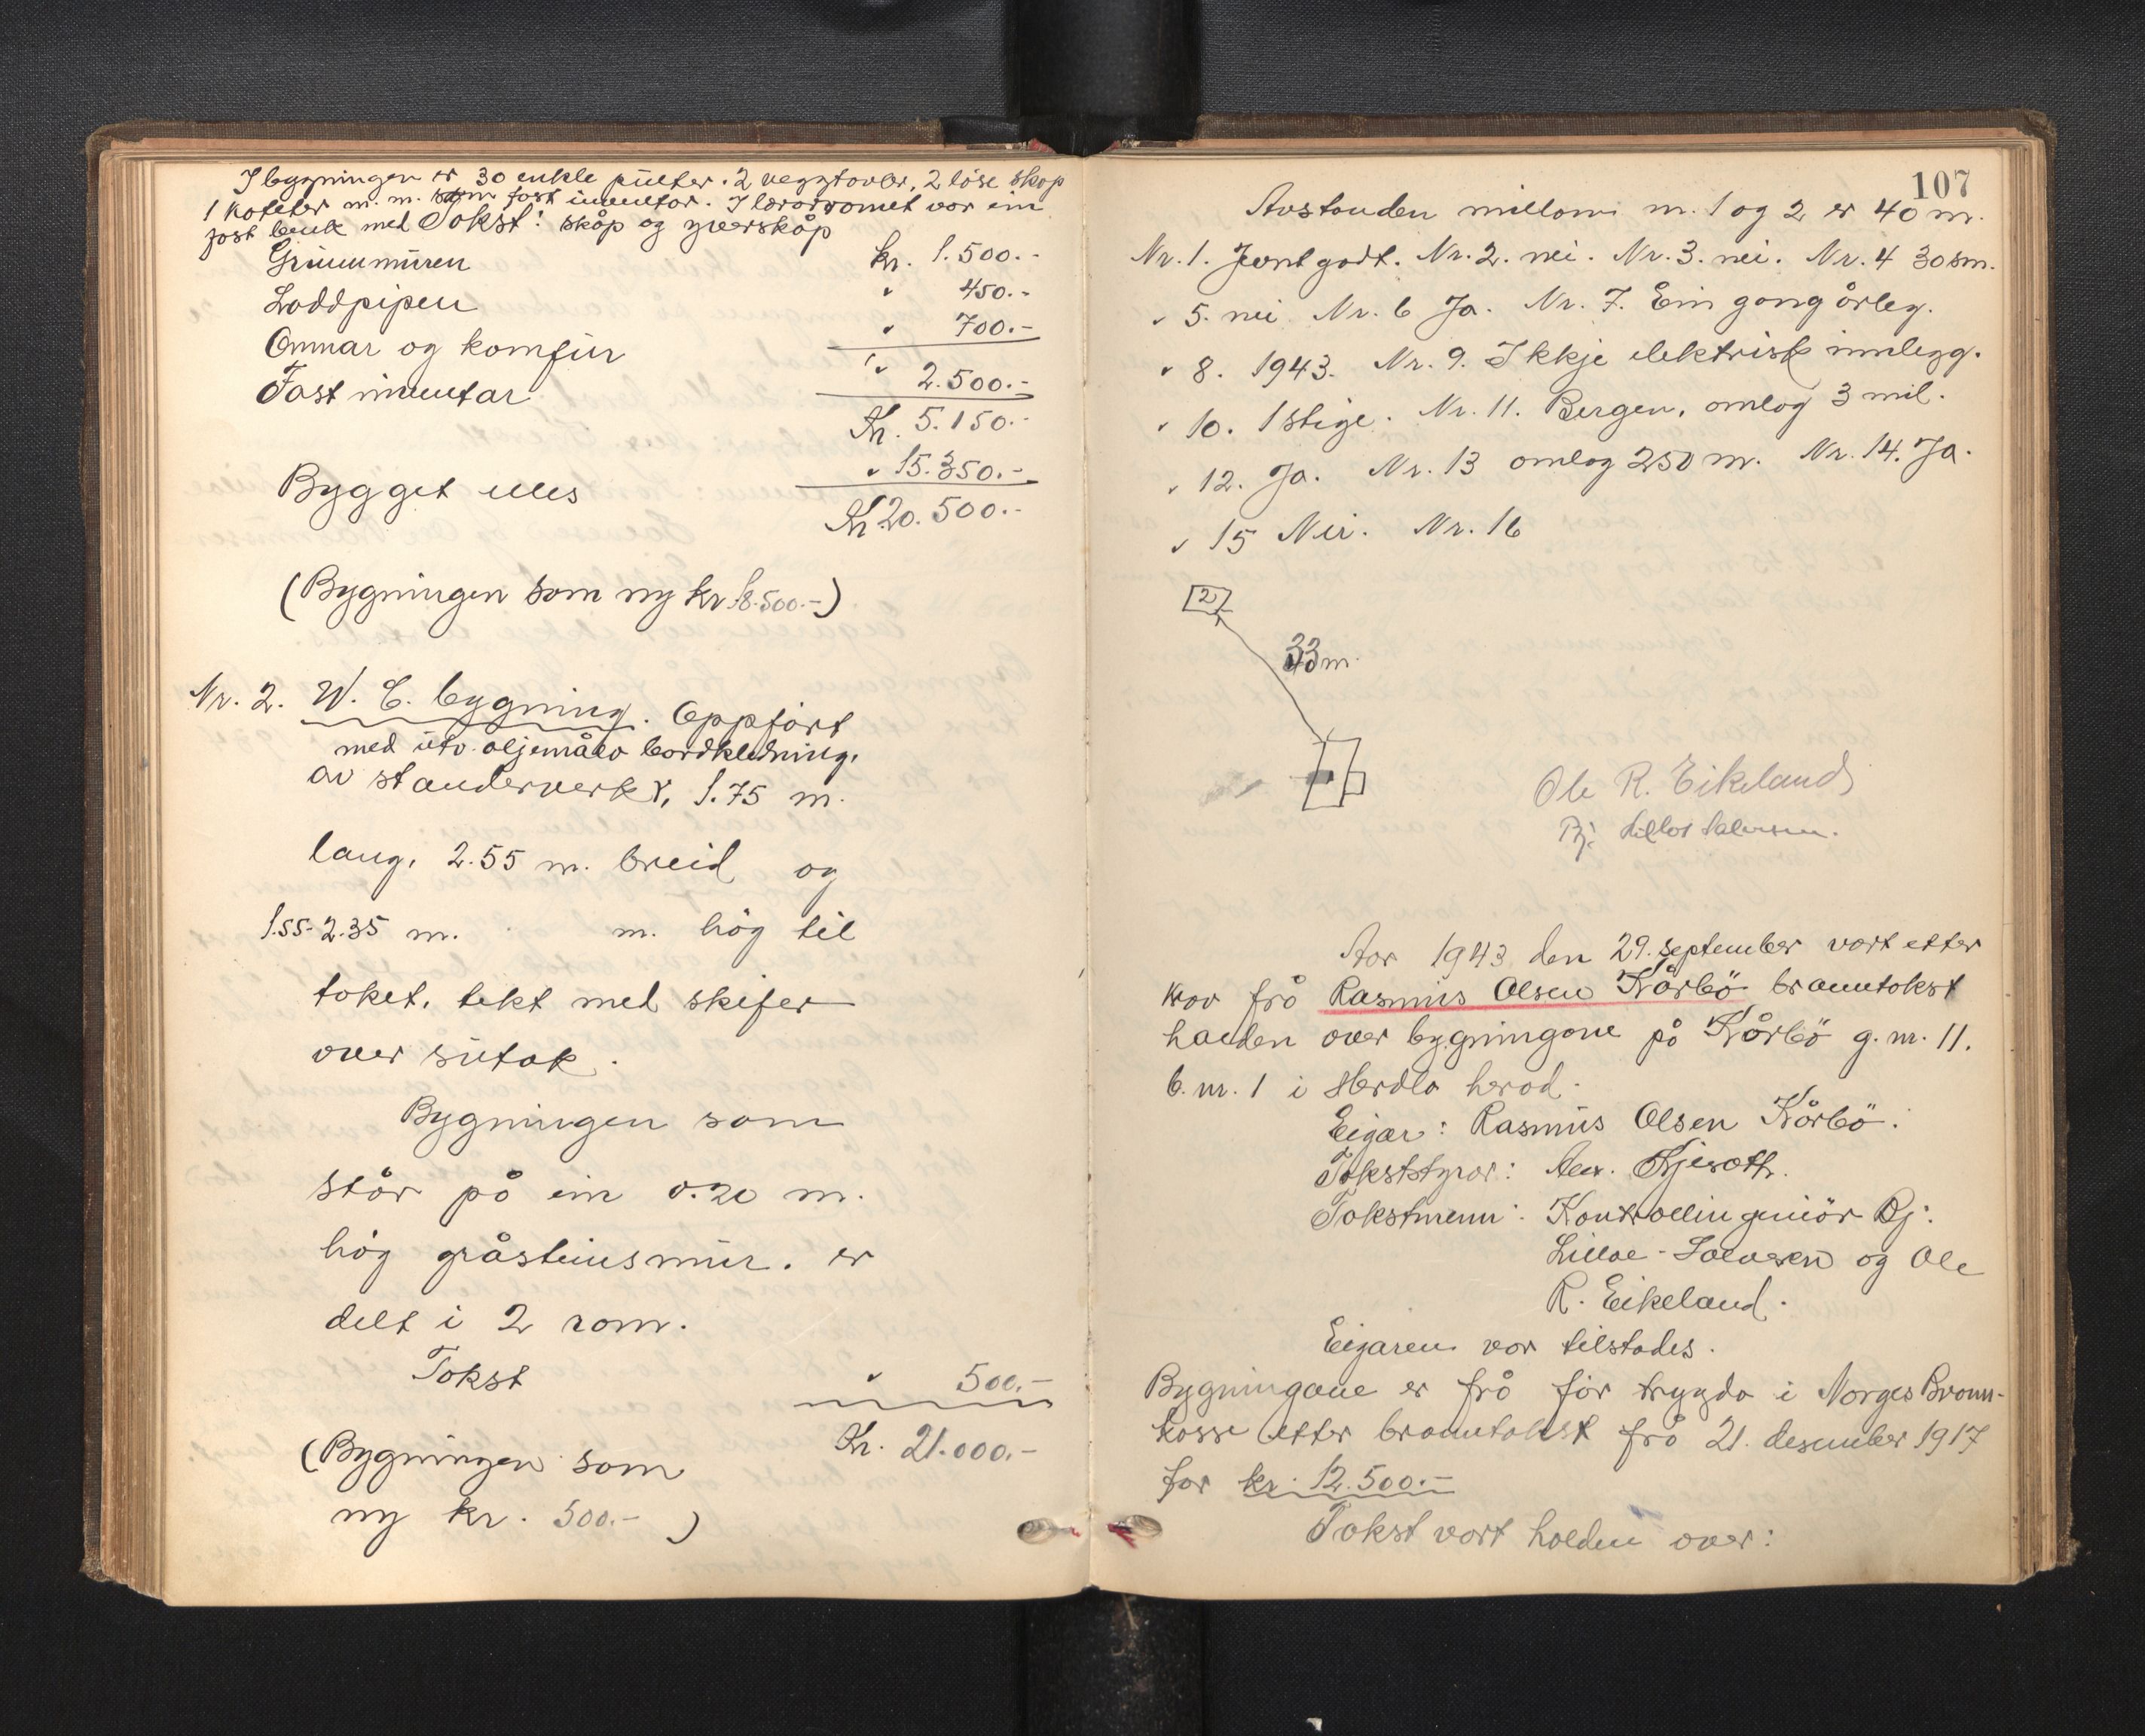 I bygningen er 30 enkle pulter. 2 veggtavler, 2 löse skap
1 kateter m. m. som fast inventar. I lærarromet var ein
fast benk med skåp og yverskåp
Takst:
Grunnmuren kr. 1.500.-
Loddpipen " 450.-
Omnar og komfur " 700.-
Fast inventar " 2.500.-
Kr. 5.150.-
Bygget elles " 15.350.-
Kr. 20.500.-
(Bygningen som ny kr 18.500.-)
Nr. 2. W. C. bygning. Oppført
med utv. oljemåla bordkledning.
av standerverk, 1.75 m.
lang, 2.55 m. breid og
1.55-2.35 m. m. høg til
taket, tekt med skifer
over sutak.
Bygningen som
står på ein 0.20 m.
høg gråsteinsmur. er
delt i 2 rom.
Takst " 500.-
Kr. 21.000.-
(Bygningen som
ny kr. 500.- )
107
Avstanden millom nr. 1 og 2 er 40 m.
Nr. 1. Jamt godt. Nr. 2. nei. Nr. 3. nei. Nr. 4 30 sm.
" 5. nei Nr. 6 Ja. Nr. 7. Ein gong årleg.
" 8. 1943. Nr. 9. Ikkje elektrisk innlegg.
" 10. 1 stige. Nr. 11. Bergen, omlag 3 mil.
" 12. Ja. Nr. 13 omlag 250 m. Nr. 14. Ja.
" 15 Nei. Nr. 16
2
33 m.
Ole R. Eikeland
Bj. Lilloe Salvesen.
Aar 1943 den 29. september vart etter
krav frå Rasmus Olsen Kårbö branntakst
halden over bygningane på Kårbö g. nr. 11.
b. nr. 1 i Herdla herad.
Eigar: Rasmus Olsen Kårbö.
Takststyrar: Alex. Kjesäth.
Takstmenn: Kontrollingeniör Bj.
Lilloe-Salvesen og Ole
R. Eikeland.
Eigaren var tilstades.
Bygningane er frå för trygda i Norges Brann-
kasse etter branntakst frå 21. desember 1917
for kr. 12.500.-
Takst vart halden over: